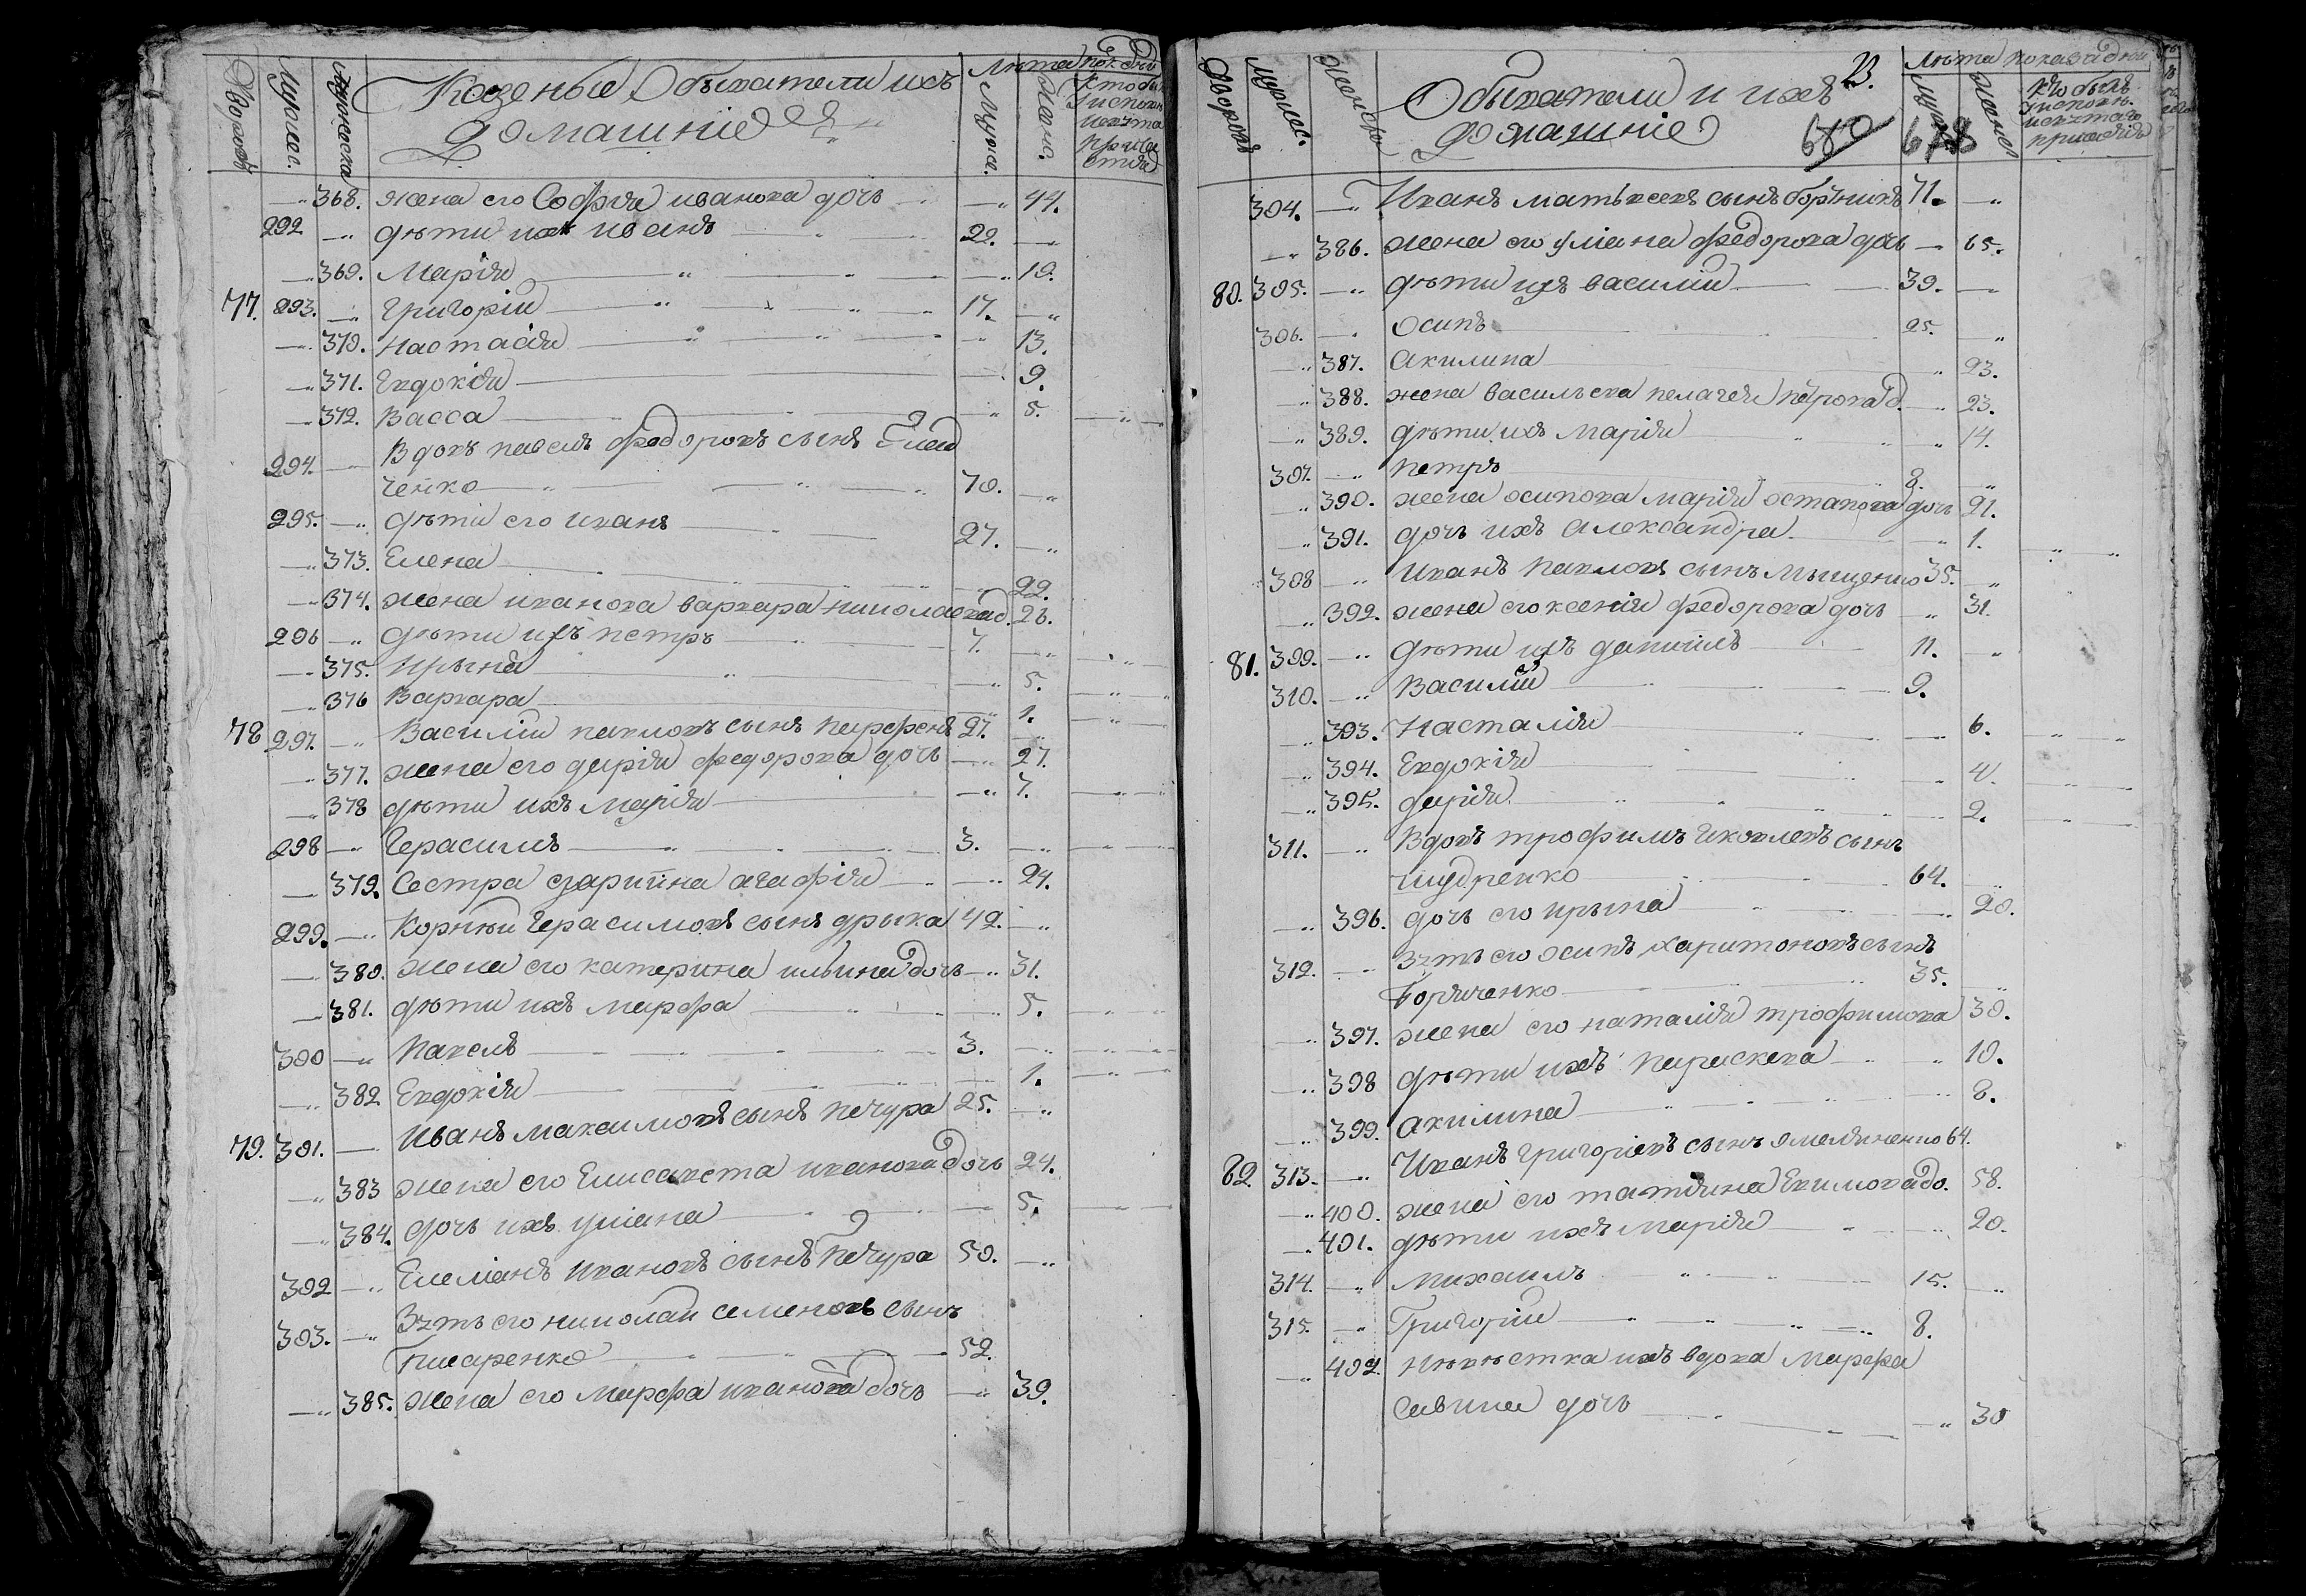 Дворовъ
Мужес.
Мужеска
Казеные Обыватели ихъ
домашніе
Лѣта пок. дні
Муже.
Женс.
368. жена его Софѣя иванова дочь 44.
292 дѣти ихъ иванъ 22.
369. Марія 19.
77. 293. григорій 17.
370. настасія 13.
371. Евдокія 9.
372. Васса 5.
294. Вдовъ павелъ федоровъ сынъ
ченко 70.
295. дѣти его иванъ 27.
373. Елена 22.
374. жена иванова варвара николаева д. 26.
296 дѣти ихъ петръ 7.
375. ирына 5.
376 Варвара 1.
78 297. Василій павловъ сынъ парфенъ 27.
377. жена его дарія федорова дочь 27.
378 дѣти ихъ марія 7.
298 Герасимъ 3.
379. Сестра агафія 24.
299. Корнѣй Герасимовъ сынъ дрыка 42.
380. жена его катерина ильина дочь 31.
381. дѣти ихъ марфа 5.
300 павелъ 3.
382 Евдокія 1.
79. 301. иванъ максимовъ сынъ печура 25.
383 жена его Елисавета иванова дочь 24.
384. дочь ихъ уліана 5.
302 Емеліанъ ивановъ сынъ печура 50.
303. Зять его николай семеновъ сынъ
писаренко 52.
385. жена его марфа иванова дочь 39.
Дворовъ
мужес.
женск
Обыватели и ихъ
домашніе
23.
680 678
Лѣта показа дніи
мужес
женс
304. Иванъ матвѣевъ сынъ борѣникъ 71.
386. жена его уліана федорова дочь 65.
80. 305. дѣти ихъ василій 39.
306. Осипъ 25.
387. Акилина 23.
388. жена васильева пелагея петрова д. 23.
389. дѣти ихъ марія 14.
307. петръ 8.
390. жена осипова марія остапова дочь 21.
391. дочь ихъ александра 1.
308 иванъ павловъ сынъ мыщенко 35.
392. жена его ксенія федорова дочь 31.
81. 309. дѣти ихъ даніилъ 11.
310. Василій 9.
393. Насталія 6.
394. Евдокія 4.
395. дарія 2.
311. Вдовъ трофимъ Яковлевъ сынъ
шудренко 64.
396. дочь его ирына 20.
312. Зять его осипъ харитоновъ сынъ
Горяченко 35.
397. жена его наталія трофимова 30.
398 дѣти ихъ параскева 10.
399. акилина 8.
82. 313. Иванъ григоріевъ сынъ омеляненко 64.
400. жена его татіяна Екимова до. 58.
401. дѣти ихъ марія 20.
314. михаилъ 15.
315. Григорій 8.
402. нѣвѣстка ихъ вдова марфа
савина дочь 30